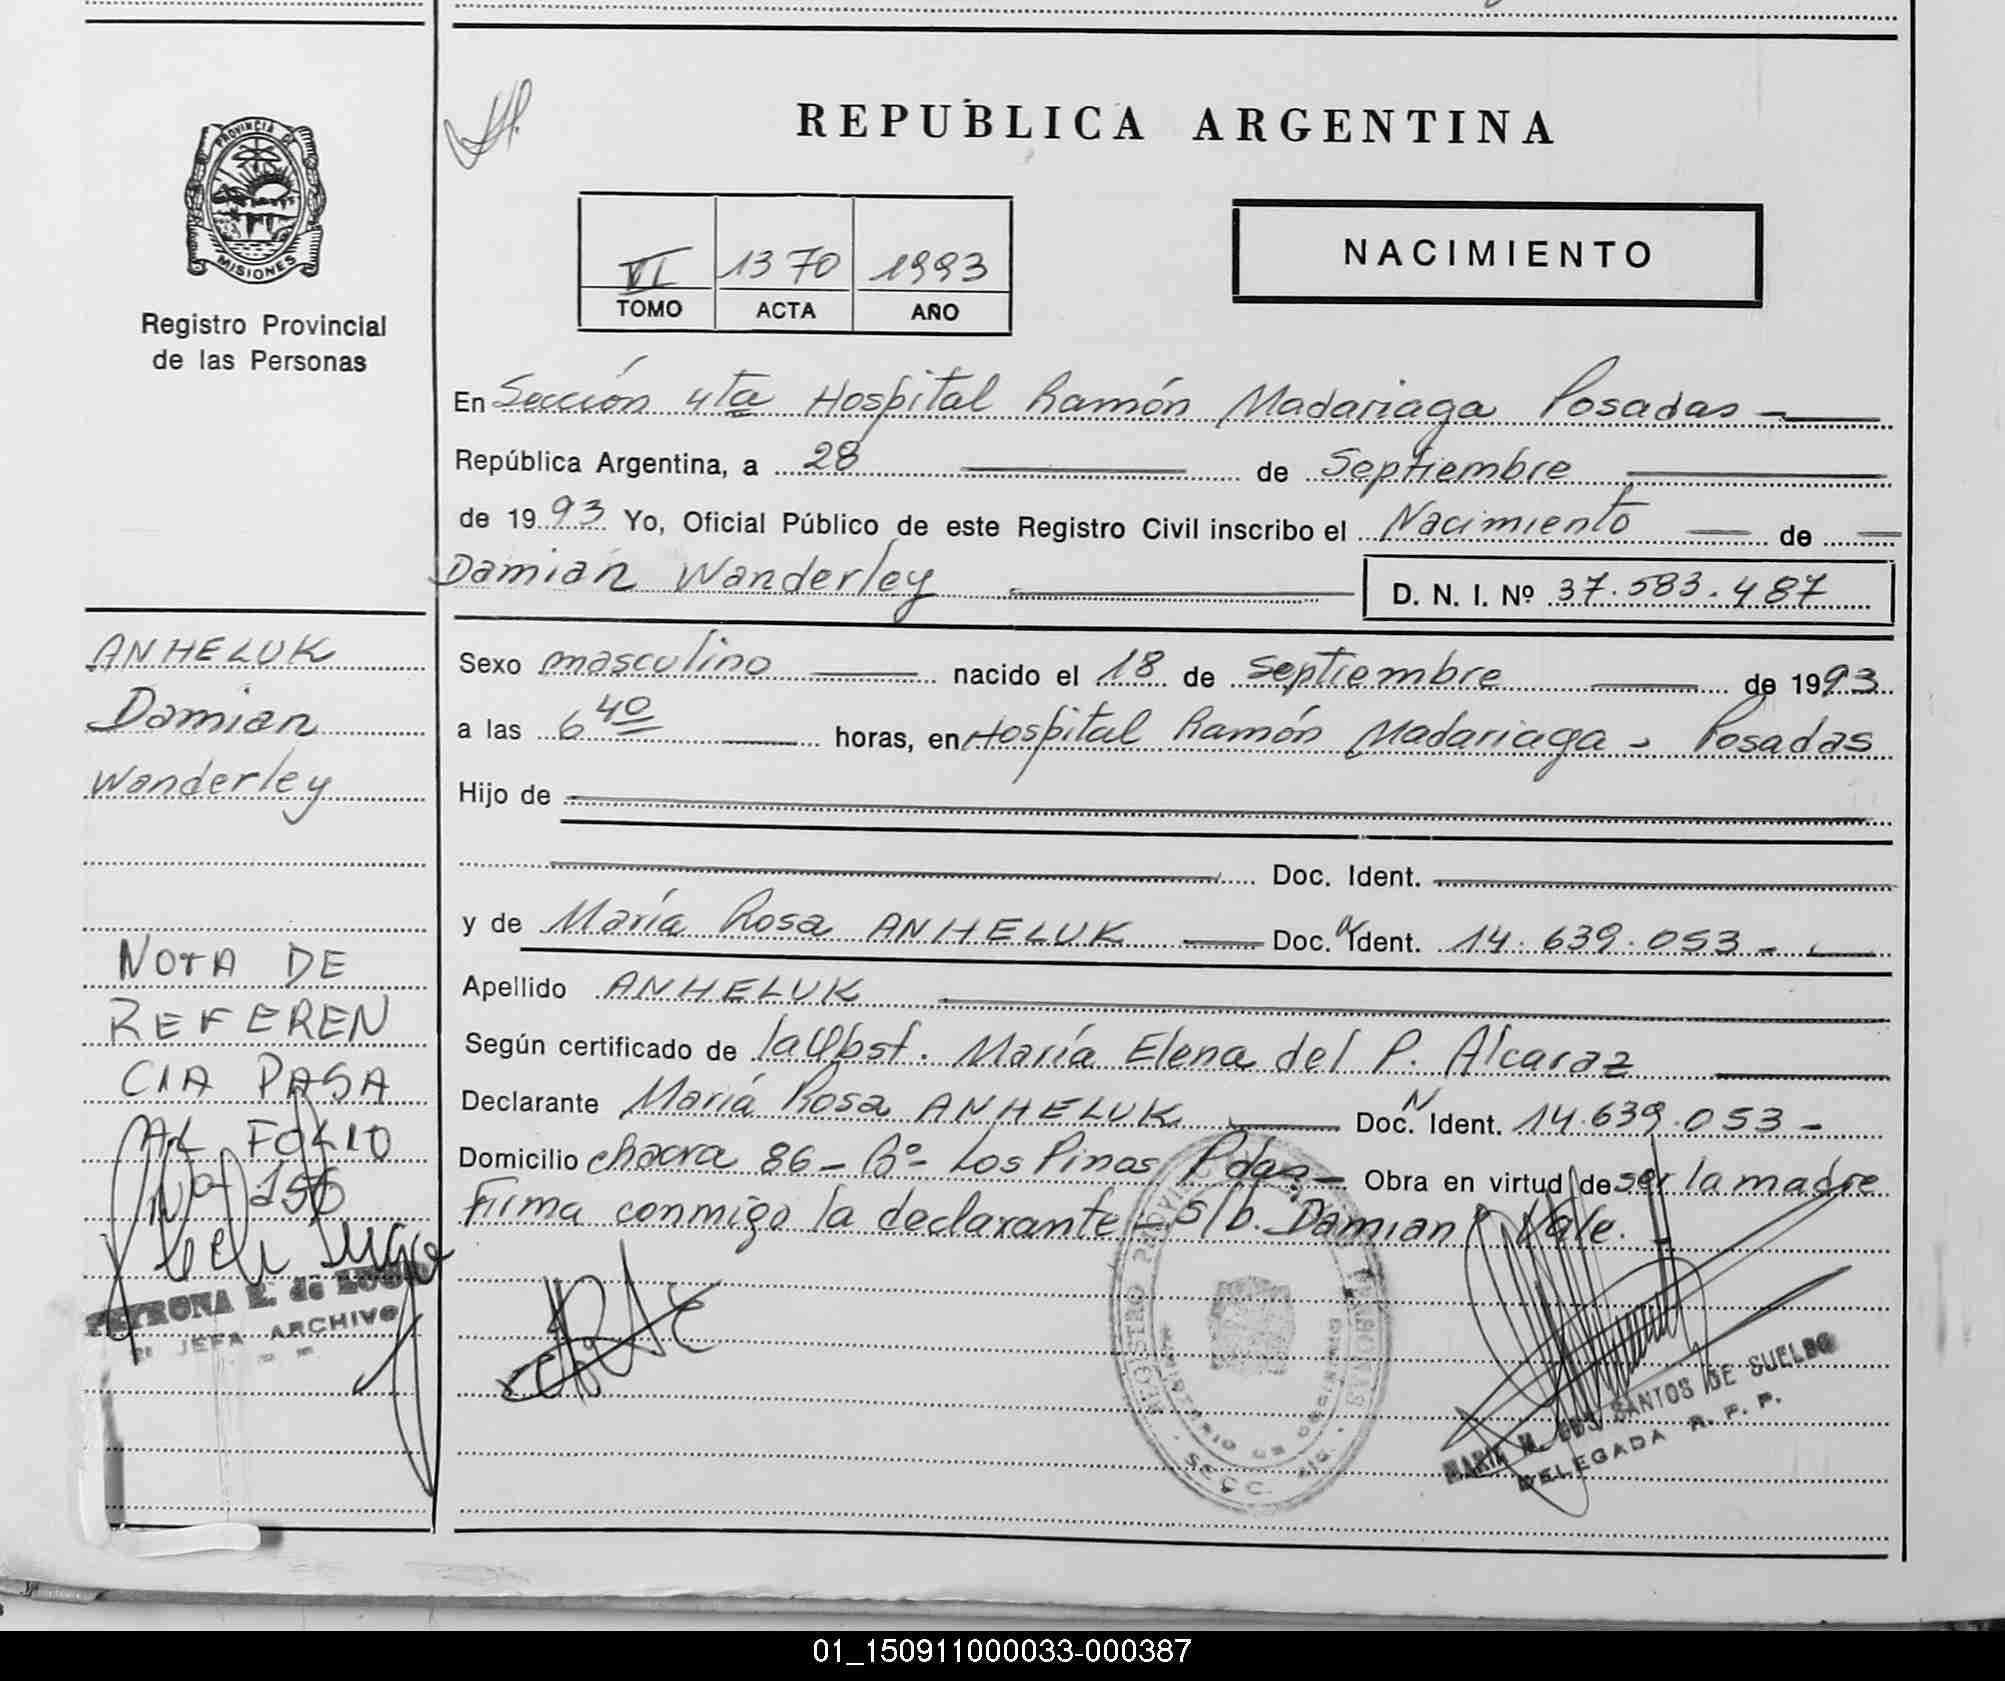 REPUBLICA ARGENTINA
PROVINCIA DE
MISIONES
Registro Provincial
de las Personas
VI 1370 1993
TOMO ACTA AÑO
NACIMIENTO
En Sección 4ta Hospital Ramón Madariaga Posadas -
República Argentina, a 28 de Septiembre
de 1993 Yo, Oficial Público de este Registro Civil inscribo el Nacimiento de
Damian Wanderley D. N. I. Nº 37.583.487
ANHELUK
Damian
Wanderley
Sexo masculino nacido el 18 de Septiembre de 1993
a las 6 40 horas, en Hospital Ramón Madariaga - Posadas
Hijo de
Doc. Ident.
y de María Rosa ANHELUK Doc. N Ident. 14.639.053 -
Apellido ANHELUK
Según certificado de la Obst. María Elena del P. Alcaraz
Declarante María Rosa ANHELUK Doc. N Ident. 14.639.053 -
Domicilio chacra 86 - Bº Los Pinos Pdas - Obra en virtud de ser la madre
Firma conmigo la declarante - S/b. Damian Vale. -
NOTA DE
REFEREN
CIA PASA
AL FOLIO
Nº 256
PETRONA E. de LUGO
JEFA ARCHIVO
REGISTRO PROVINCIAL PERSONAS
MINISTERIO DE GOBIERNO
MARIA M. DOS SANTOS DE SUELDO
DELEGADA R. P. P.
01_150911000033-000387